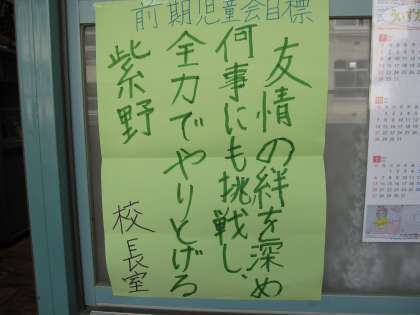 前期児童会目標
友情の絆を深め
何事にも挑戦し、
全力でやりとげる
紫野
校長室